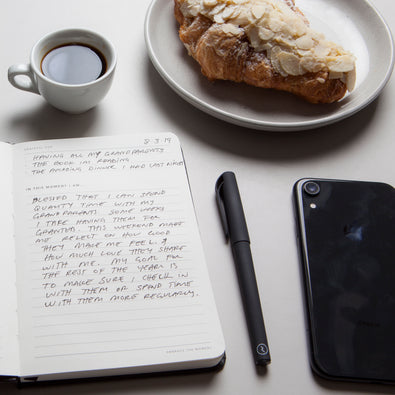 GRATEFUL FOR
8.3.19
HAVING ALL MY GRANDPARENTS
THE BOOK IM READING
THE AMAZING DINNER I HAD LAST NIGHT
IN THIS MOMENT I AM
BLESSED THAT I CAN SPEND
QUALITY TIME WITH MY
GRANDPARENTS. SOME WEEKS
I TAKE HAVING THEM FOR
GRANTED. THIS WEEKEND MADE
ME REFLECT ON HOW GOOD
THEY MAKE ME FEEL &
HOW MUCH LOVE THEY SHARE
WITH ME. MY GOAL FOR
THE REST OF THE YEAR IS
TO MAKE SURE I CHECK IN
WITH THEM OR SPEND TIME
WITH THEM MORE REGULARLY.